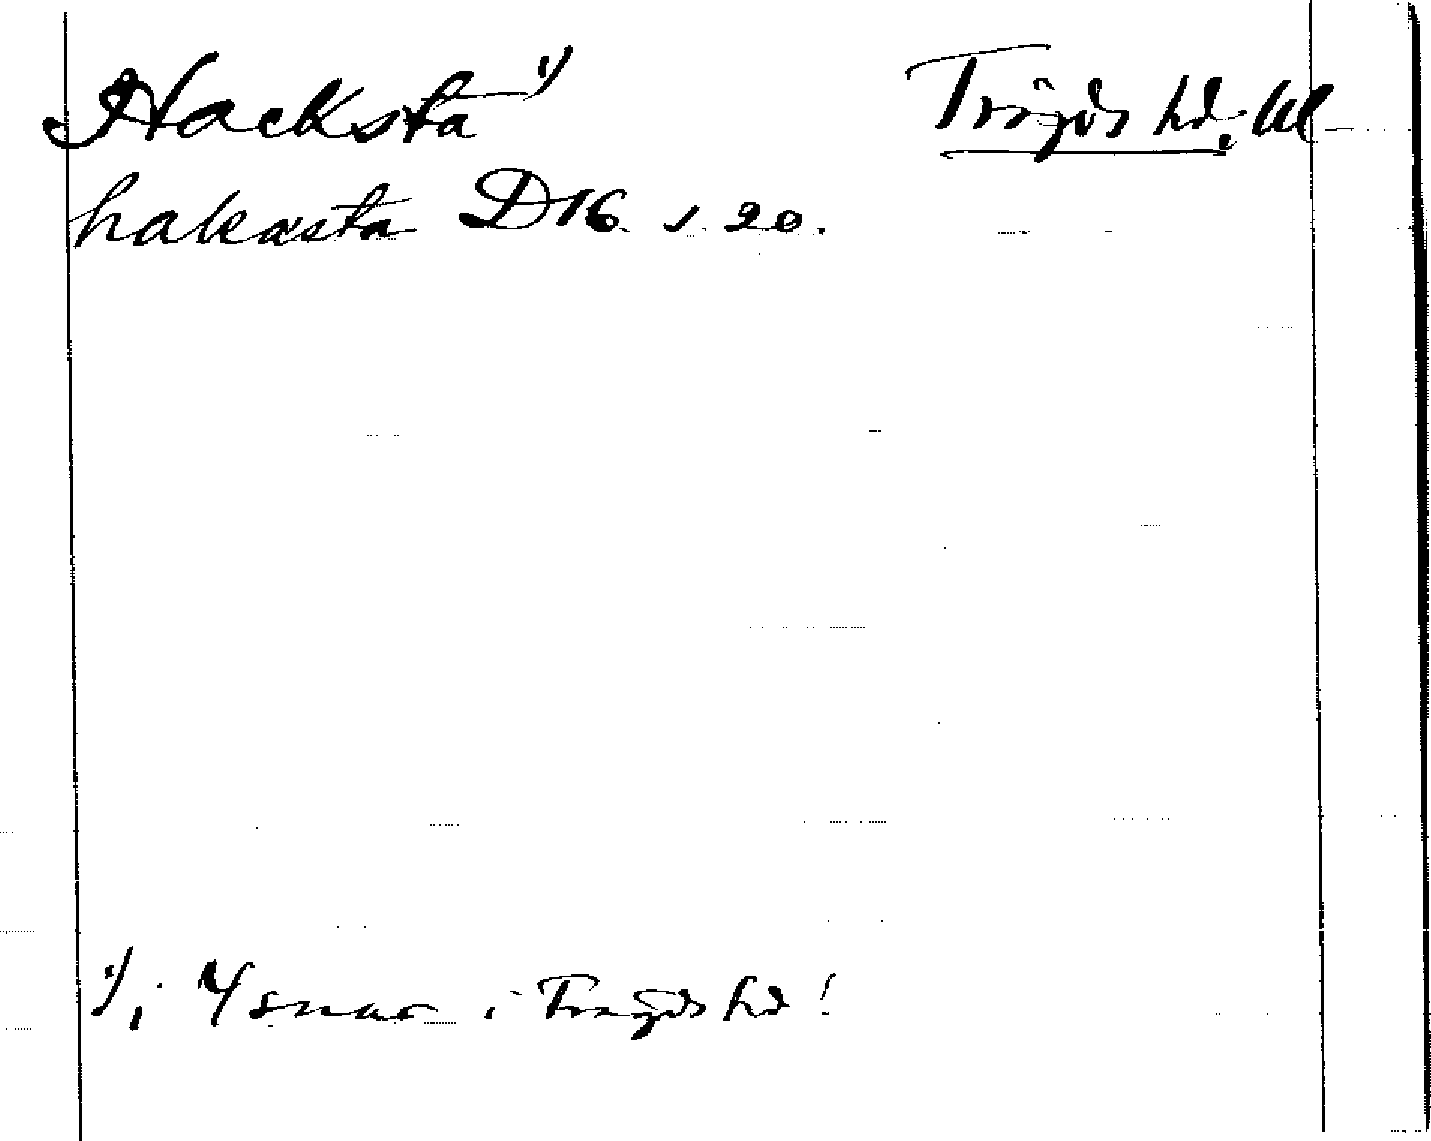 Hacksta 1) Trögds hd. Ul
hakasta D16 s. 20.
1) i Ysnar i Trögds hd!